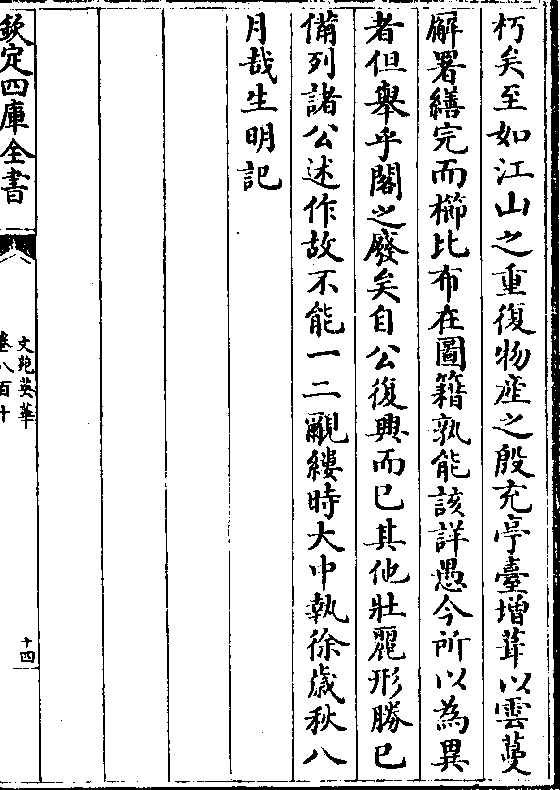 朽矣至如江山之重復物産之殷充亭臺增葺以雲蔓
廨署繕完而櫛比布在圖籍孰能該詳愚今所以為異
者但舉乎閣之廢矣自公復興而已其他壯麗形勝已
備列諸公述作故不能一二覼縷時大中執徐歲秋八
月哉生明記
欽定四庫全書
文苑英華
卷八百十
十四